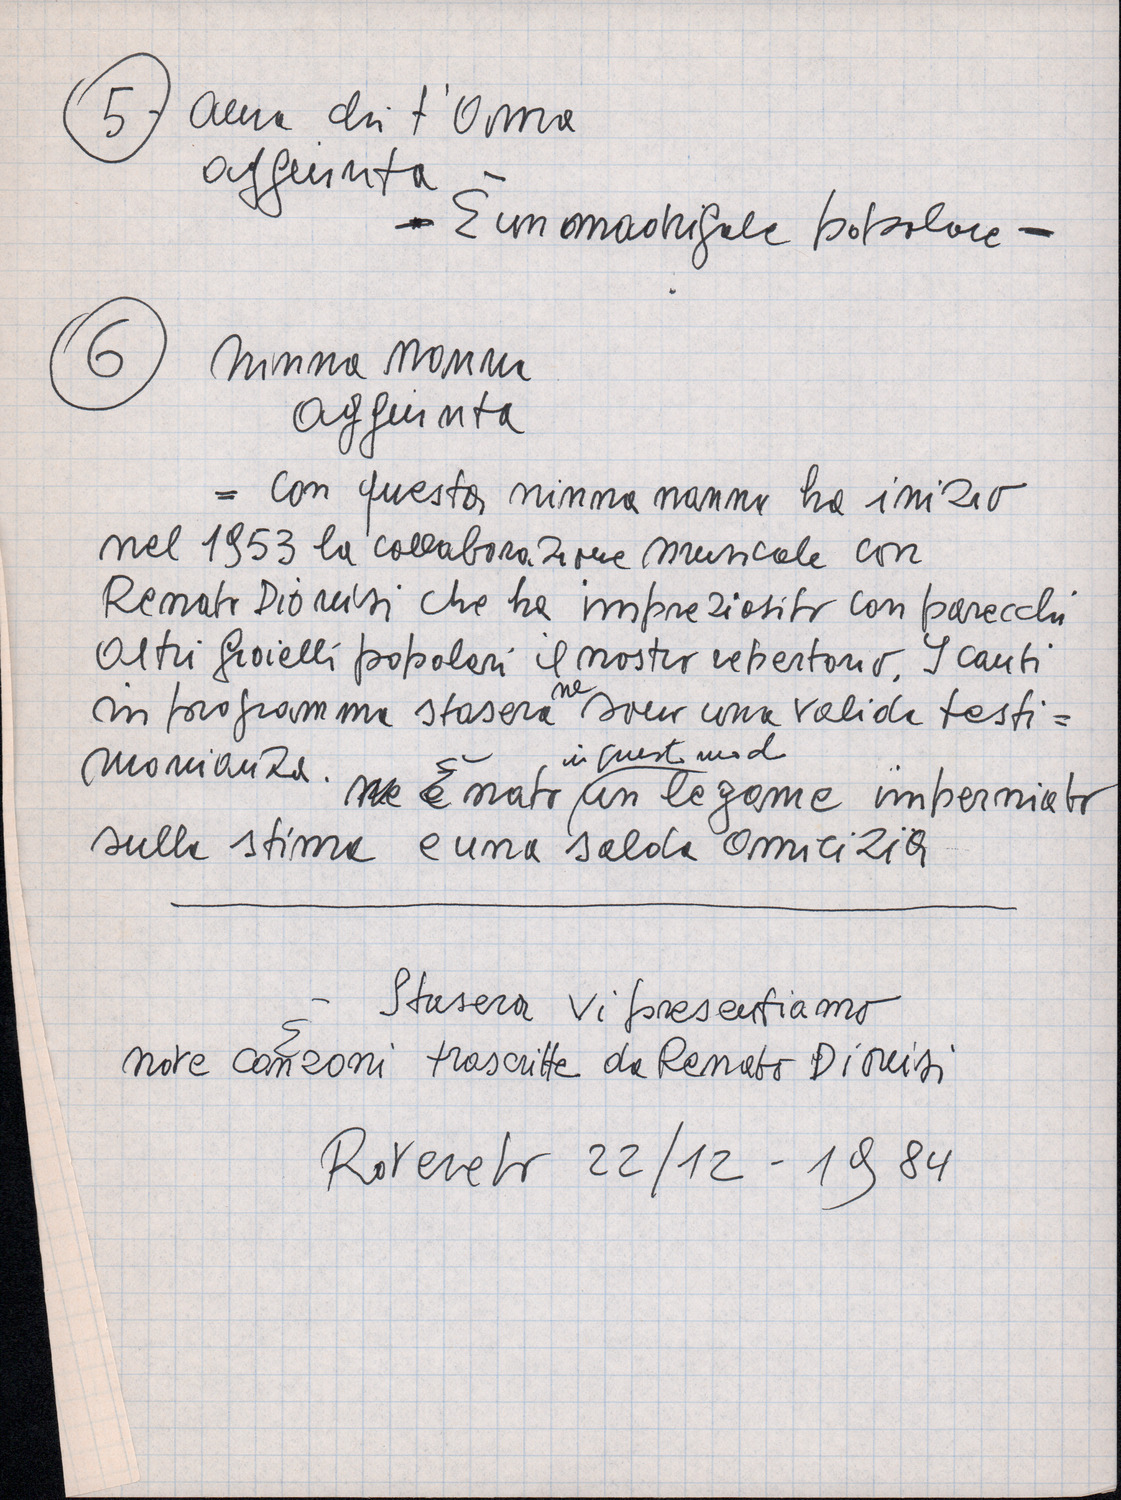 5 - alla chi t'Oma
aggiunta
- È un madrigale popolare -
6 ninna nanna
aggiunta
= con questa ninna nanna ha inizio
nel 1953 la collaborazione musicale con
Renato Dionisi che ha impreziosito con parecchi
altri gioielli popolari il nostro repertorio. I canti
in programma stasera ne sono una valida testi=
monianza.
in questo modo
ne È nato un legame imperniato
sulla stima e una salda amicizia
- Stasera vi presentiamo
nove canzoni trascritte da Renato Dionisi
Rovereto 22/12 - 1984